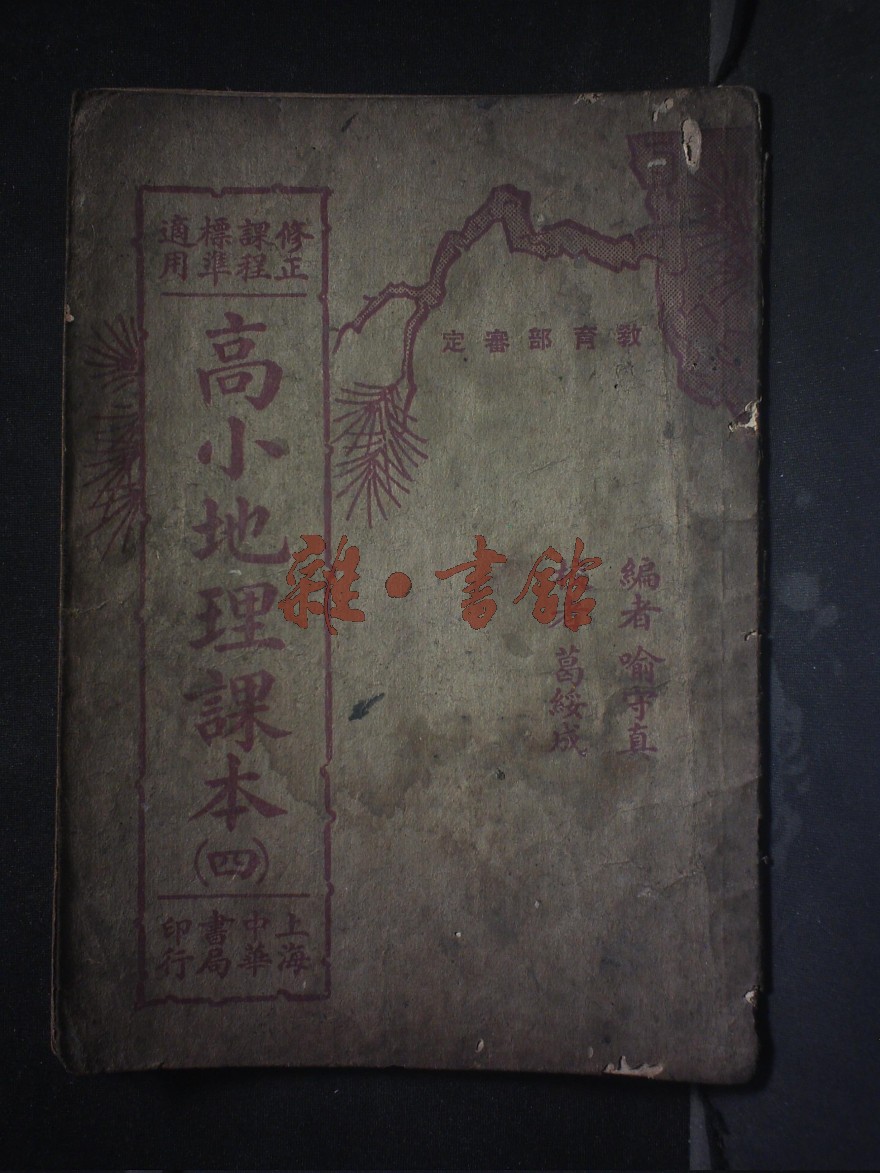 教育部審定
編者 喻守真
葛綏成
修正
課程
標準
適用
高小地理課本(四)
上海
中華
書局
印行
雜·書館